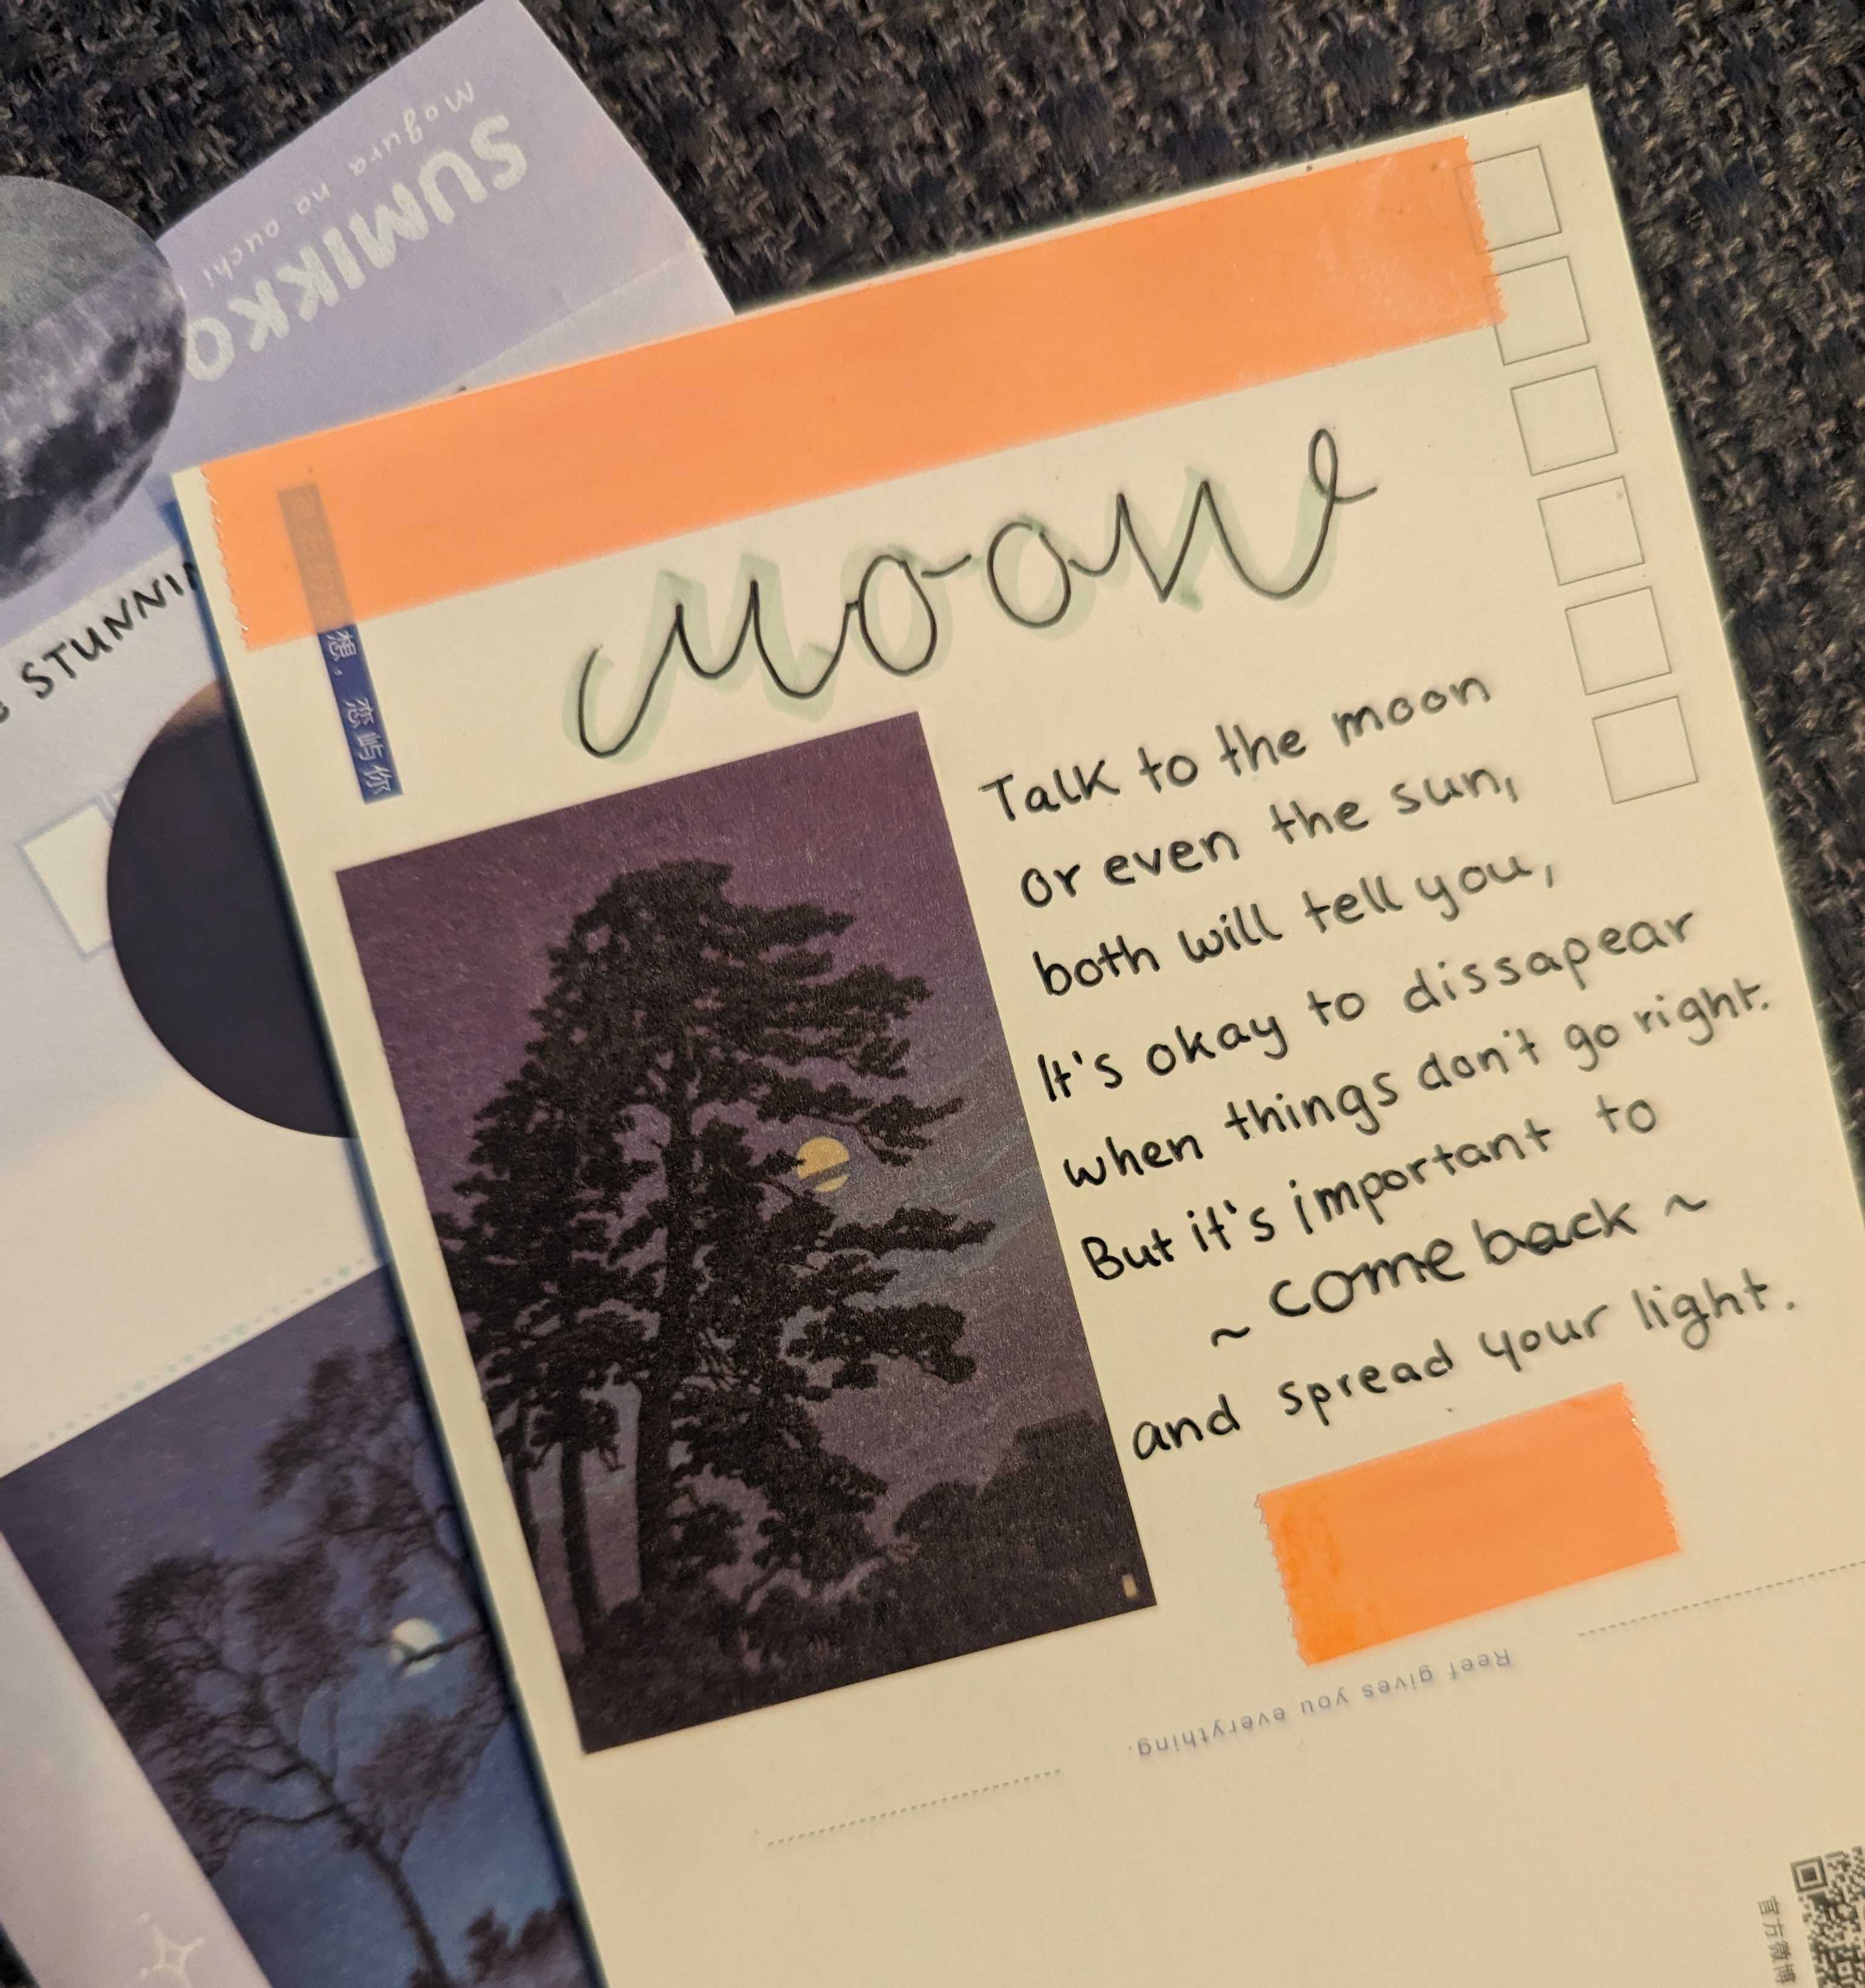 Mogura no ouchi
SUMIKKO
STUNNI
想，恋屿你
Moon
Talk to the moon
or even the sun,
both will tell you,
It's okay to dissapear
when things don't go right.
But it's important to
~ come back ~
and spread your light.
Reef gives you everything.
官方微博